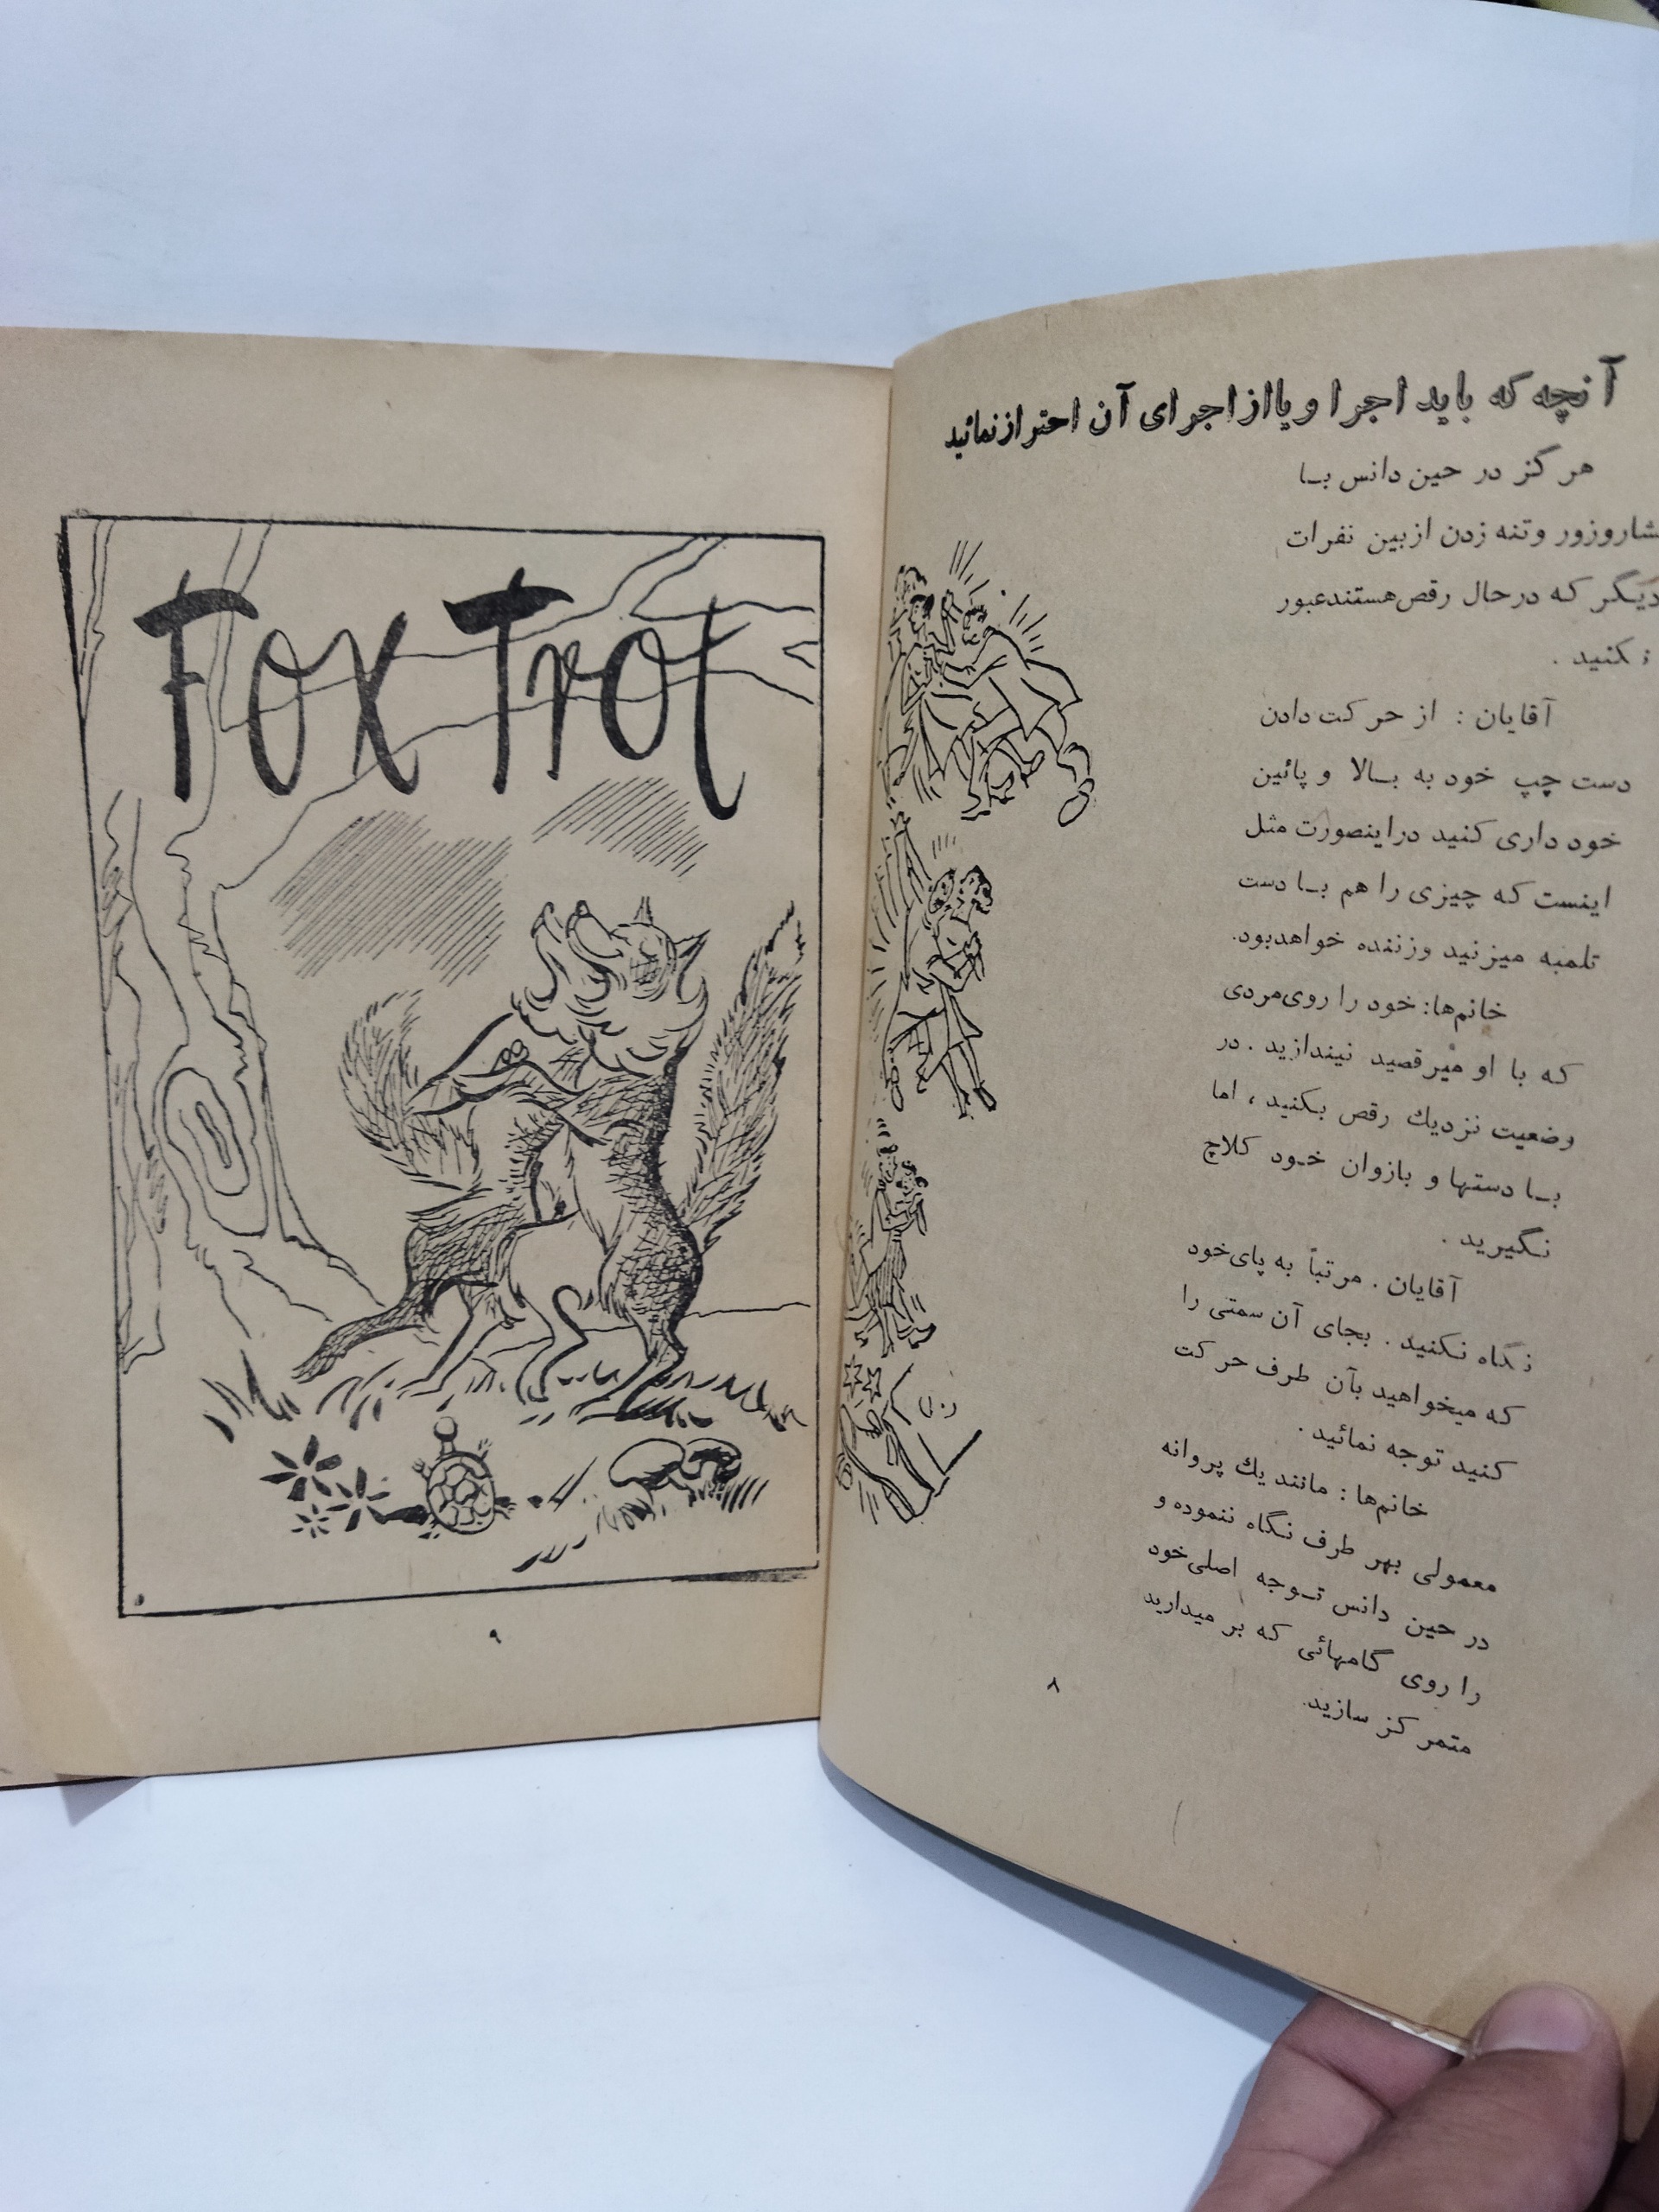 آنچه که باید اجرا و یا از اجرای آن احتراز نمائید
هرگز در حین دانس بـا
شاروزور وتنه زدن ازبین نفرات
دیگر که درحال رقص هستندعبور
نکنید .
آقایان : از حرکت دادن
دست چپ خود به بـالا و پائین
خود داری کنید دراینصورت مثل
اینست که چیزی را هم بـا دست
تلمبه میزنید وزننده خواهدبود.
خانم‌ها: خود را روی‌مردی
که با او میرقصید نیندازید . در
وضعیت نزدیك رقص بکنید ، اما
بـا دستها و بازوان خـود کلاچ
نگیرید .
آقایان . مرتباً به پای‌خود
نگاه نکنید . بجای آن سمتی را
که میخواهید بآن طرف حرکت
کنید توجه نمائید .
خانم‌ها : مانند یك پروانه
معمولی بهر طرف نگاه ننموده و
در حین دانس تـوجه اصلی‌خود
را روی گامهائی که بر میدارید
متمرکز سازید.
۸
Fox Trot
۹